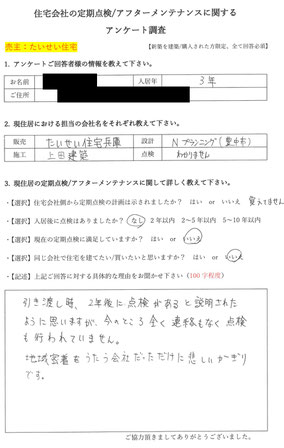 住宅会社の定期点検/アフターメンテナンスに関する
アンケート調査
売主：たいせい住宅
【新築を建築/購入された方限定、全て回答必須】
1. アンケートご回答者様の情報を教えて下さい。
お名前 入居年 3年
ご住所
2. 現住居における担当の会社名をそれぞれ教えて下さい。
販売 たいせい住宅兵庫 設計 Nプランニング(豊中市)
施工 上田建築 点検 わかりません
3. 現住居の定期点検/アフターメンテナンスに関して詳しく教えて下さい。
・【選択】住宅会社側から定期点検の計画は示されましたか？ はい or いいえ 覚えてません
・【選択】入居後に点検はありましたか？ なし 2年以内 2～5年以内 5～10年以内
・【選択】現在の定期点検に満足していますか？ はい or いいえ
・【選択】同じ会社で住宅を建てたい/買いたいと思いますか？ はい or いいえ
・【記述】上記ご回答に対する具体的な理由をお聞かせ下さい（100字程度）
引き渡し時、2年後に点検があると説明された
ように思いますが、今のところ全く連絡もなく点検
も行われていません。
地域密着をうたう会社だっただけに悲しいかぎり
です。
ご協力頂きましてありがとうございました。